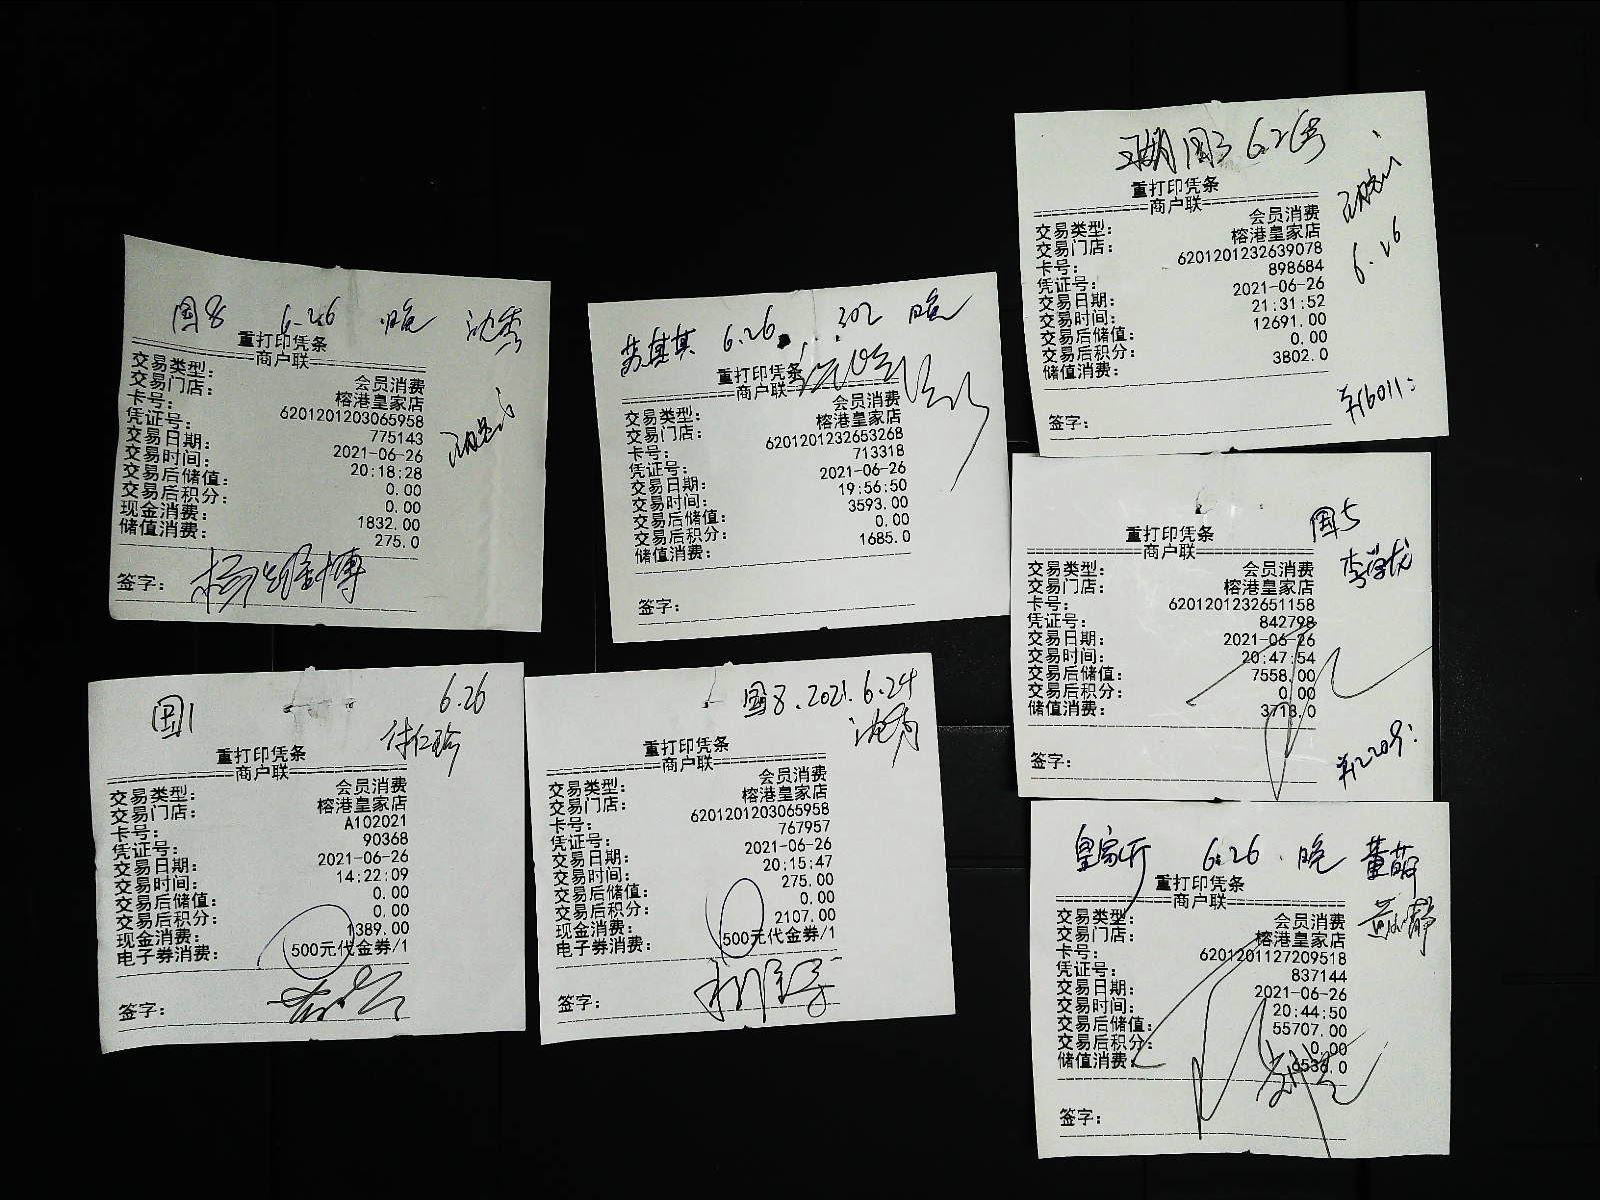 国8 6.26 晚
重打印凭条
商户联
交易类型: 会员消费
交易门店: 榕港皇家店
卡号: 6201201203065958
凭证号: 775143
交易日期: 2021-06-26
交易时间: 20:18:28
交易后储值: 0.00
交易后积分: 0.00
现金消费: 1832.00
储值消费: 275.0
签字:
6.26 302 晚
重打印凭条
商户联
交易类型: 会员消费
交易门店: 榕港皇家店
卡号: 6201201232653268
凭证号: 713318
交易日期: 2021-06-26
交易时间: 19:56:50
交易后储值: 3593.00
交易后积分: 0.00
储值消费: 1685.0
签字:
国3 6.26号
重打印凭条
商户联
6.26
交易类型: 会员消费
交易门店: 榕港皇家店
卡号: 6201201232639078
凭证号: 898684
交易日期: 2021-06-26
交易时间: 21:31:52
交易后储值: 12691.00
交易后积分: 0.00
储值消费: 3802.0
签字:
国5
李学龙
重打印凭条
商户联
交易类型: 会员消费
交易门店: 榕港皇家店
卡号: 6201201232651158
凭证号: 842798
交易日期: 2021-06-26
交易时间: 20:47:54
交易后储值: 7558.00
交易后积分: 0.00
储值消费: 3718.0
签字:
国1 6.26
付仁珍
重打印凭条
商户联
交易类型: 会员消费
交易门店: 榕港皇家店
卡号: A102021
凭证号: 90368
交易日期: 2021-06-26
交易时间: 14:22:09
交易后储值: 0.00
交易后积分: 0.00
现金消费: 1389.00
电子券消费: 500元代金券/1
签字:
国8.2021.6.24
重打印凭条
商户联
交易类型: 会员消费
交易门店: 榕港皇家店
卡号: 6201201203065958
凭证号: 767957
交易日期: 2021-06-26
交易时间: 20:15:47
交易后储值: 275.00
交易后积分: 0.00
现金消费: 2107.00
电子券消费: 500元代金券/1
签字:
皇家厅 6.26.晚 董萌
重打印凭条
商户联
交易类型: 会员消费
交易门店: 榕港皇家店
卡号: 6201201127209518
凭证号: 837144
交易日期: 2021-06-26
交易时间: 20:44:50
交易后储值: 55707.00
交易后积分: 0.00
储值消费: 6536.0
签字: